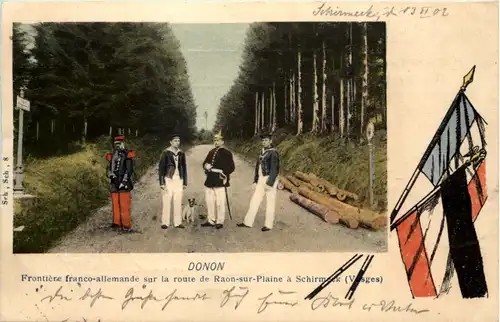 Schirmeck, d 13 VI 02
Sch. Sch. 8
DONON
Frontière franco-allemande sur la route de Raon-sur-Plaine à Schirmeck (Vosges)
Die besten Grüße sendet